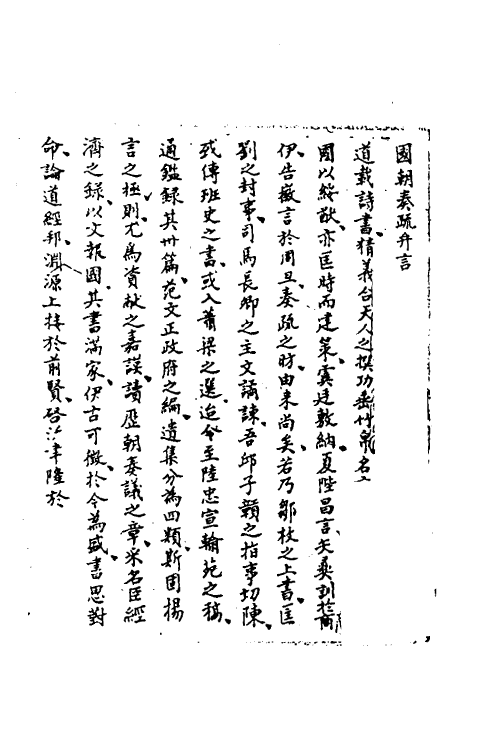 國朝奏疏弁言
道載詩書精義台天人之撰功垂竹帛名
周以綏猷亦匡時而建策虞廷敷納夏陛昌言矢彝訓於商
伊告微言於周旦奏疏之昉由来尚矣若乃鄒枚之上書匡
劉之封事司馬長卿之主文譎諫吾邱子贛之指事切陳
或傳班史之書或入蕭梁之選迨今至陸忠宣翰苑之稿
通鑑録其卅篇范文正政府之編遺集分為四類斯固揚
言之極則尤為資献之嘉謨讀歷朝奏議之章采名臣經
濟之録以文報國其書滿家伊古可徵於今為盛書思對
命論道經邦淵源上接於前賢啓沃聿隆於